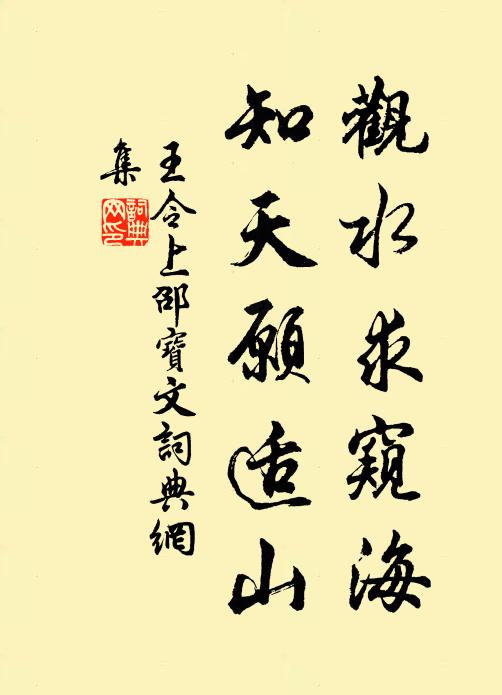 觀水求窺海
知天願适山
王令上邵寶文詞典網
集
詞典網印